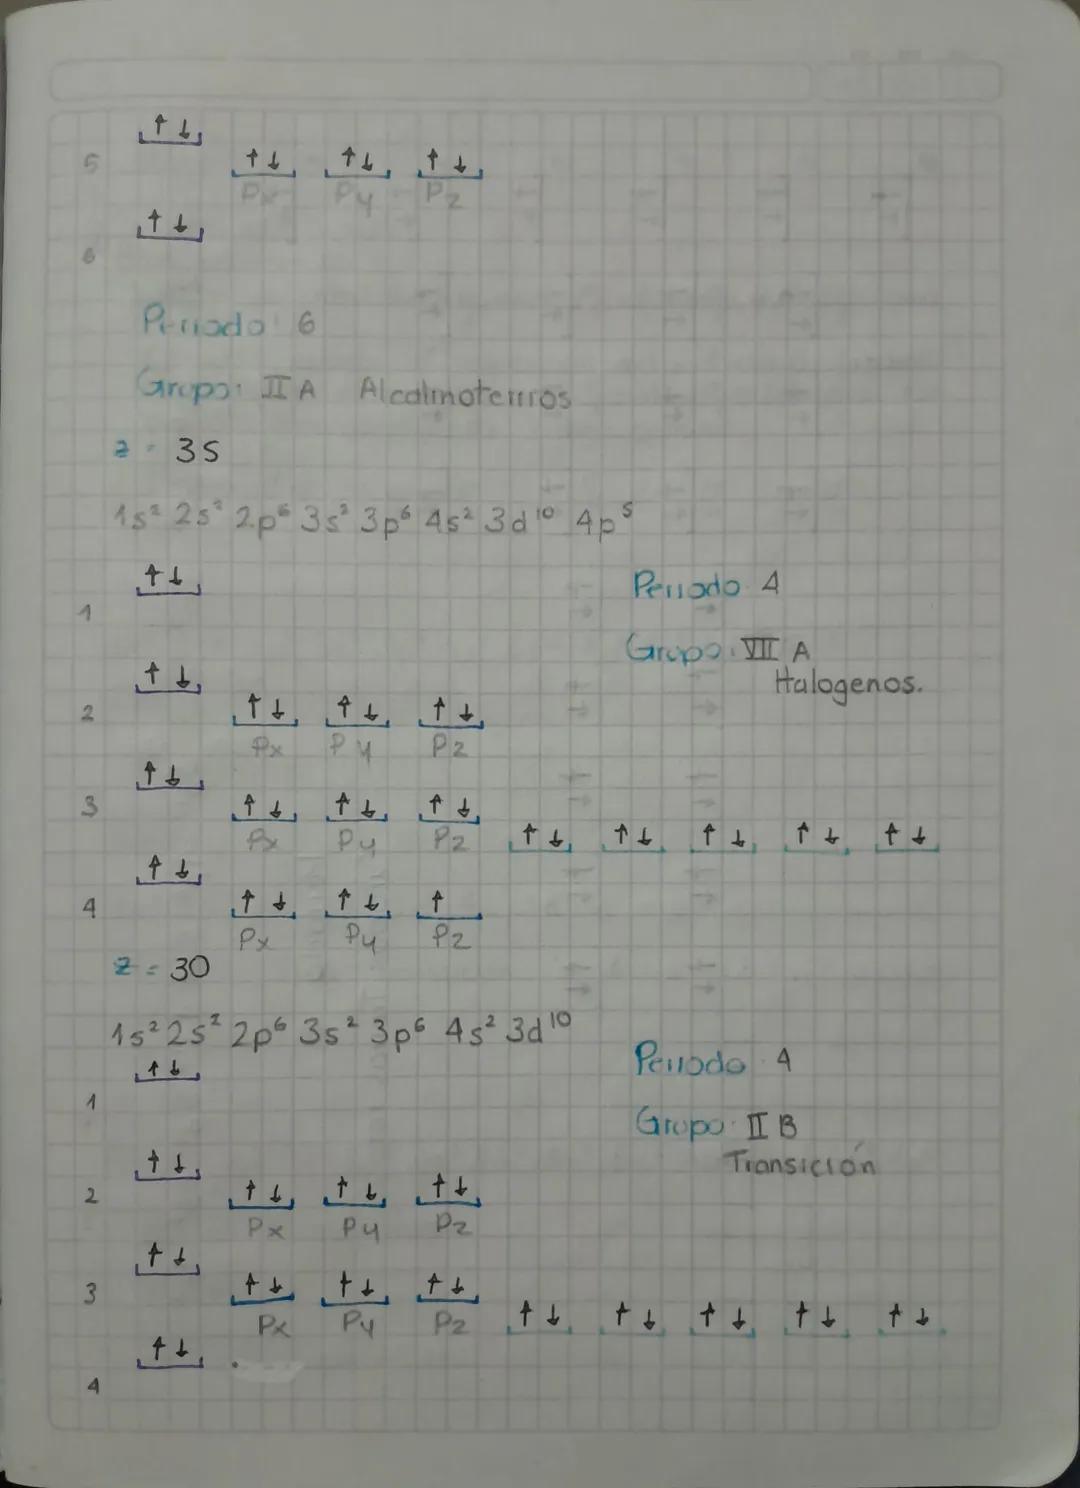 ↑↓
5 ↑↓ ↑↓ ↑↓
Px Py Pz
↑↓
6
Periodo: 6
Grupo: II A Alcalinoterrros
z = 35
1s² 2s² 2p⁶ 3s² 3p⁶ 4s² 3d¹⁰ 4p⁵
↑↓ Periodo 4
1
Grupo: VII A
↑↓ Halogenos.
2 ↑↓ ↑↓ ↑↓
Px Py Pz
↑↓
3 ↑↓ ↑↓ ↑↓
Px Py Pz ↑↓ ↑↓ ↑↓ ↑↓ ↑↓
↑↓
4 ↑↓ ↑↓ ↑
Px Py Pz
z = 30
1s² 2s² 2p⁶ 3s² 3p⁶ 4s² 3d¹⁰
↑↓ Periodo 4
1
Grupo: II B
↑↓ Transición
2 ↑↓ ↑↓ ↑↓
Px Py Pz
↑↓
3 ↑↓ ↑↓ ↑↓
Px Py Pz ↑↓ ↑↓ ↑↓ ↑↓ ↑↓
↑↓
4